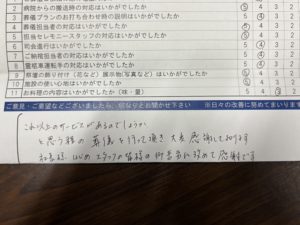 2 病院からの搬送時の対応はいかがでしたか 5 4 3
3 葬儀プランのお打ち合わせ時の説明はいかがでしたか 5 4 3
4 葬儀担当者の対応はいかがでしたか 5 4 3
5 担当セレモニースタッフの対応はいかがでしたか 5 4 3
6 司会進行はいかがでしたか 5 4 3
7 ご納棺担当者の対応はいかがでしたか 5 4 3
8 霊柩車運転手の対応はいかがでしたか 5 4 3
9 祭壇の飾り付け(花など)展示物(写真など)はいかがでしたか 5 4 3
10 施設の使い心地はいかがでしたか 5 4 3
11 お料理の内容はいかがでしたか(味・量) 5 4 3 2
ご意見・ご要望などございましたら、何なりとお聞かせ下さい ※日々の改善に努めてまいります
これ以上のサービスがあるのでしょうか
と思う程の葬儀を行って頂き大変感謝しております
はじめスタッフの皆様の御苦労に改めて感謝です